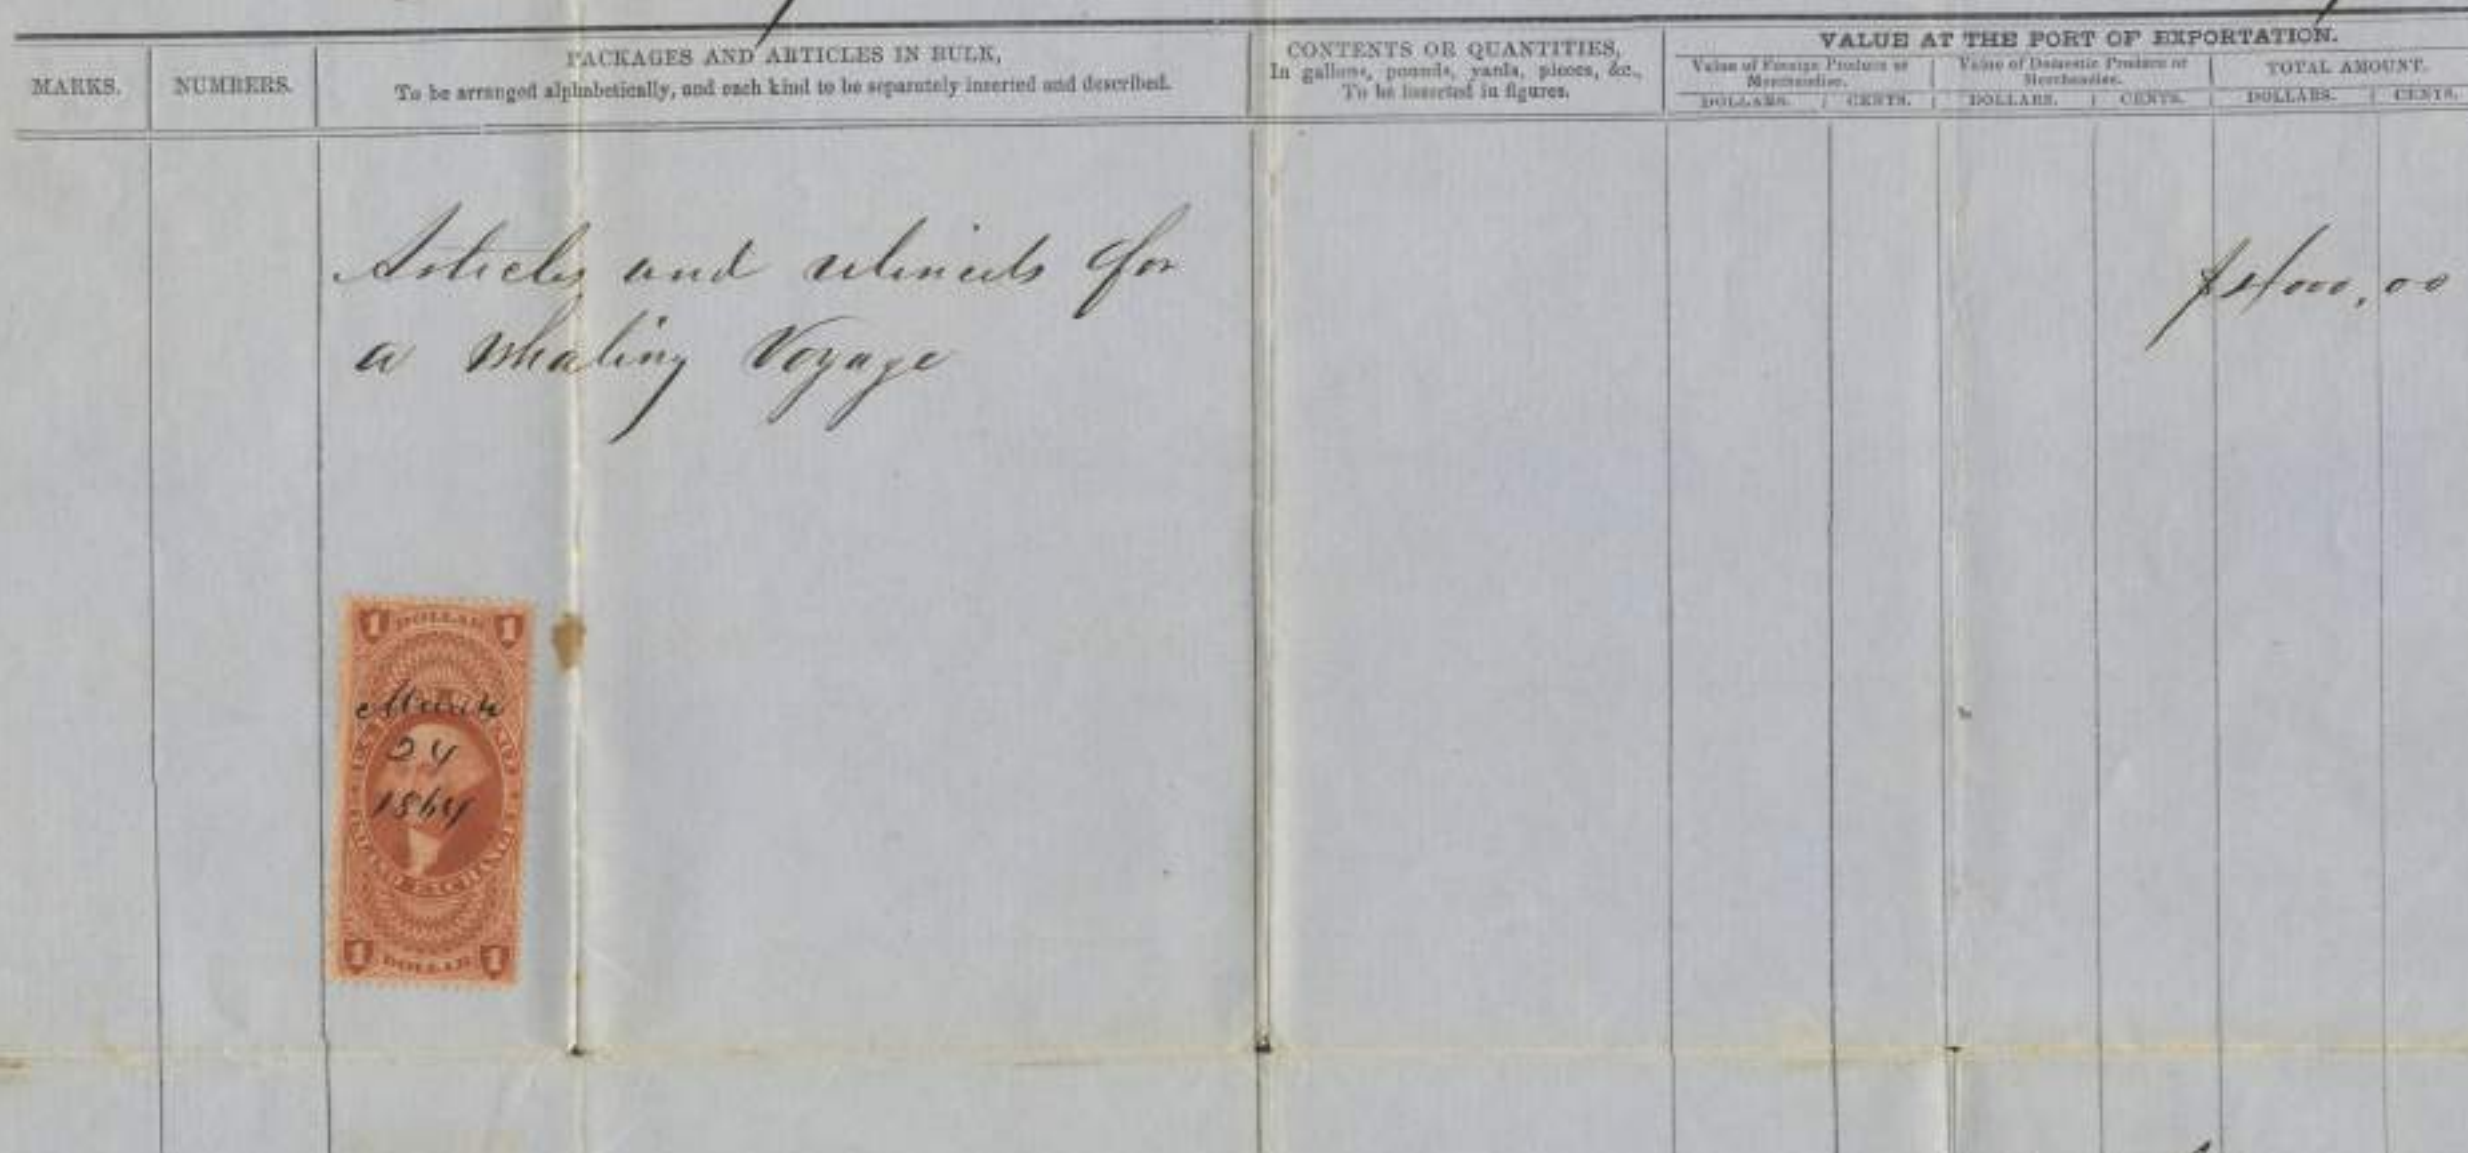 MARKS.
NUMBERS.
PACKAGES AND ARTICLES IN BULK,
To be arranged alphabetically, and each kind to be separately inserted and described.
CONTENTS OR QUANTITIES,
In gallons, pounds, yards, pieces, &c.,
To be inserted in figures.
VALUE AT THE PORT OF EXPORTATION.
Value of Foreign Produce or
Merchandise.
DOLLARS. CENTS.
Value of Domestic Produce or
Merchandise.
DOLLARS. CENTS.
TOTAL AMOUNT.
DOLLARS. CENTS.
Articles and utensils for
a Whaling Voyage
1 DOLLAR 1
March
24
1864
1 DOLLAR 1